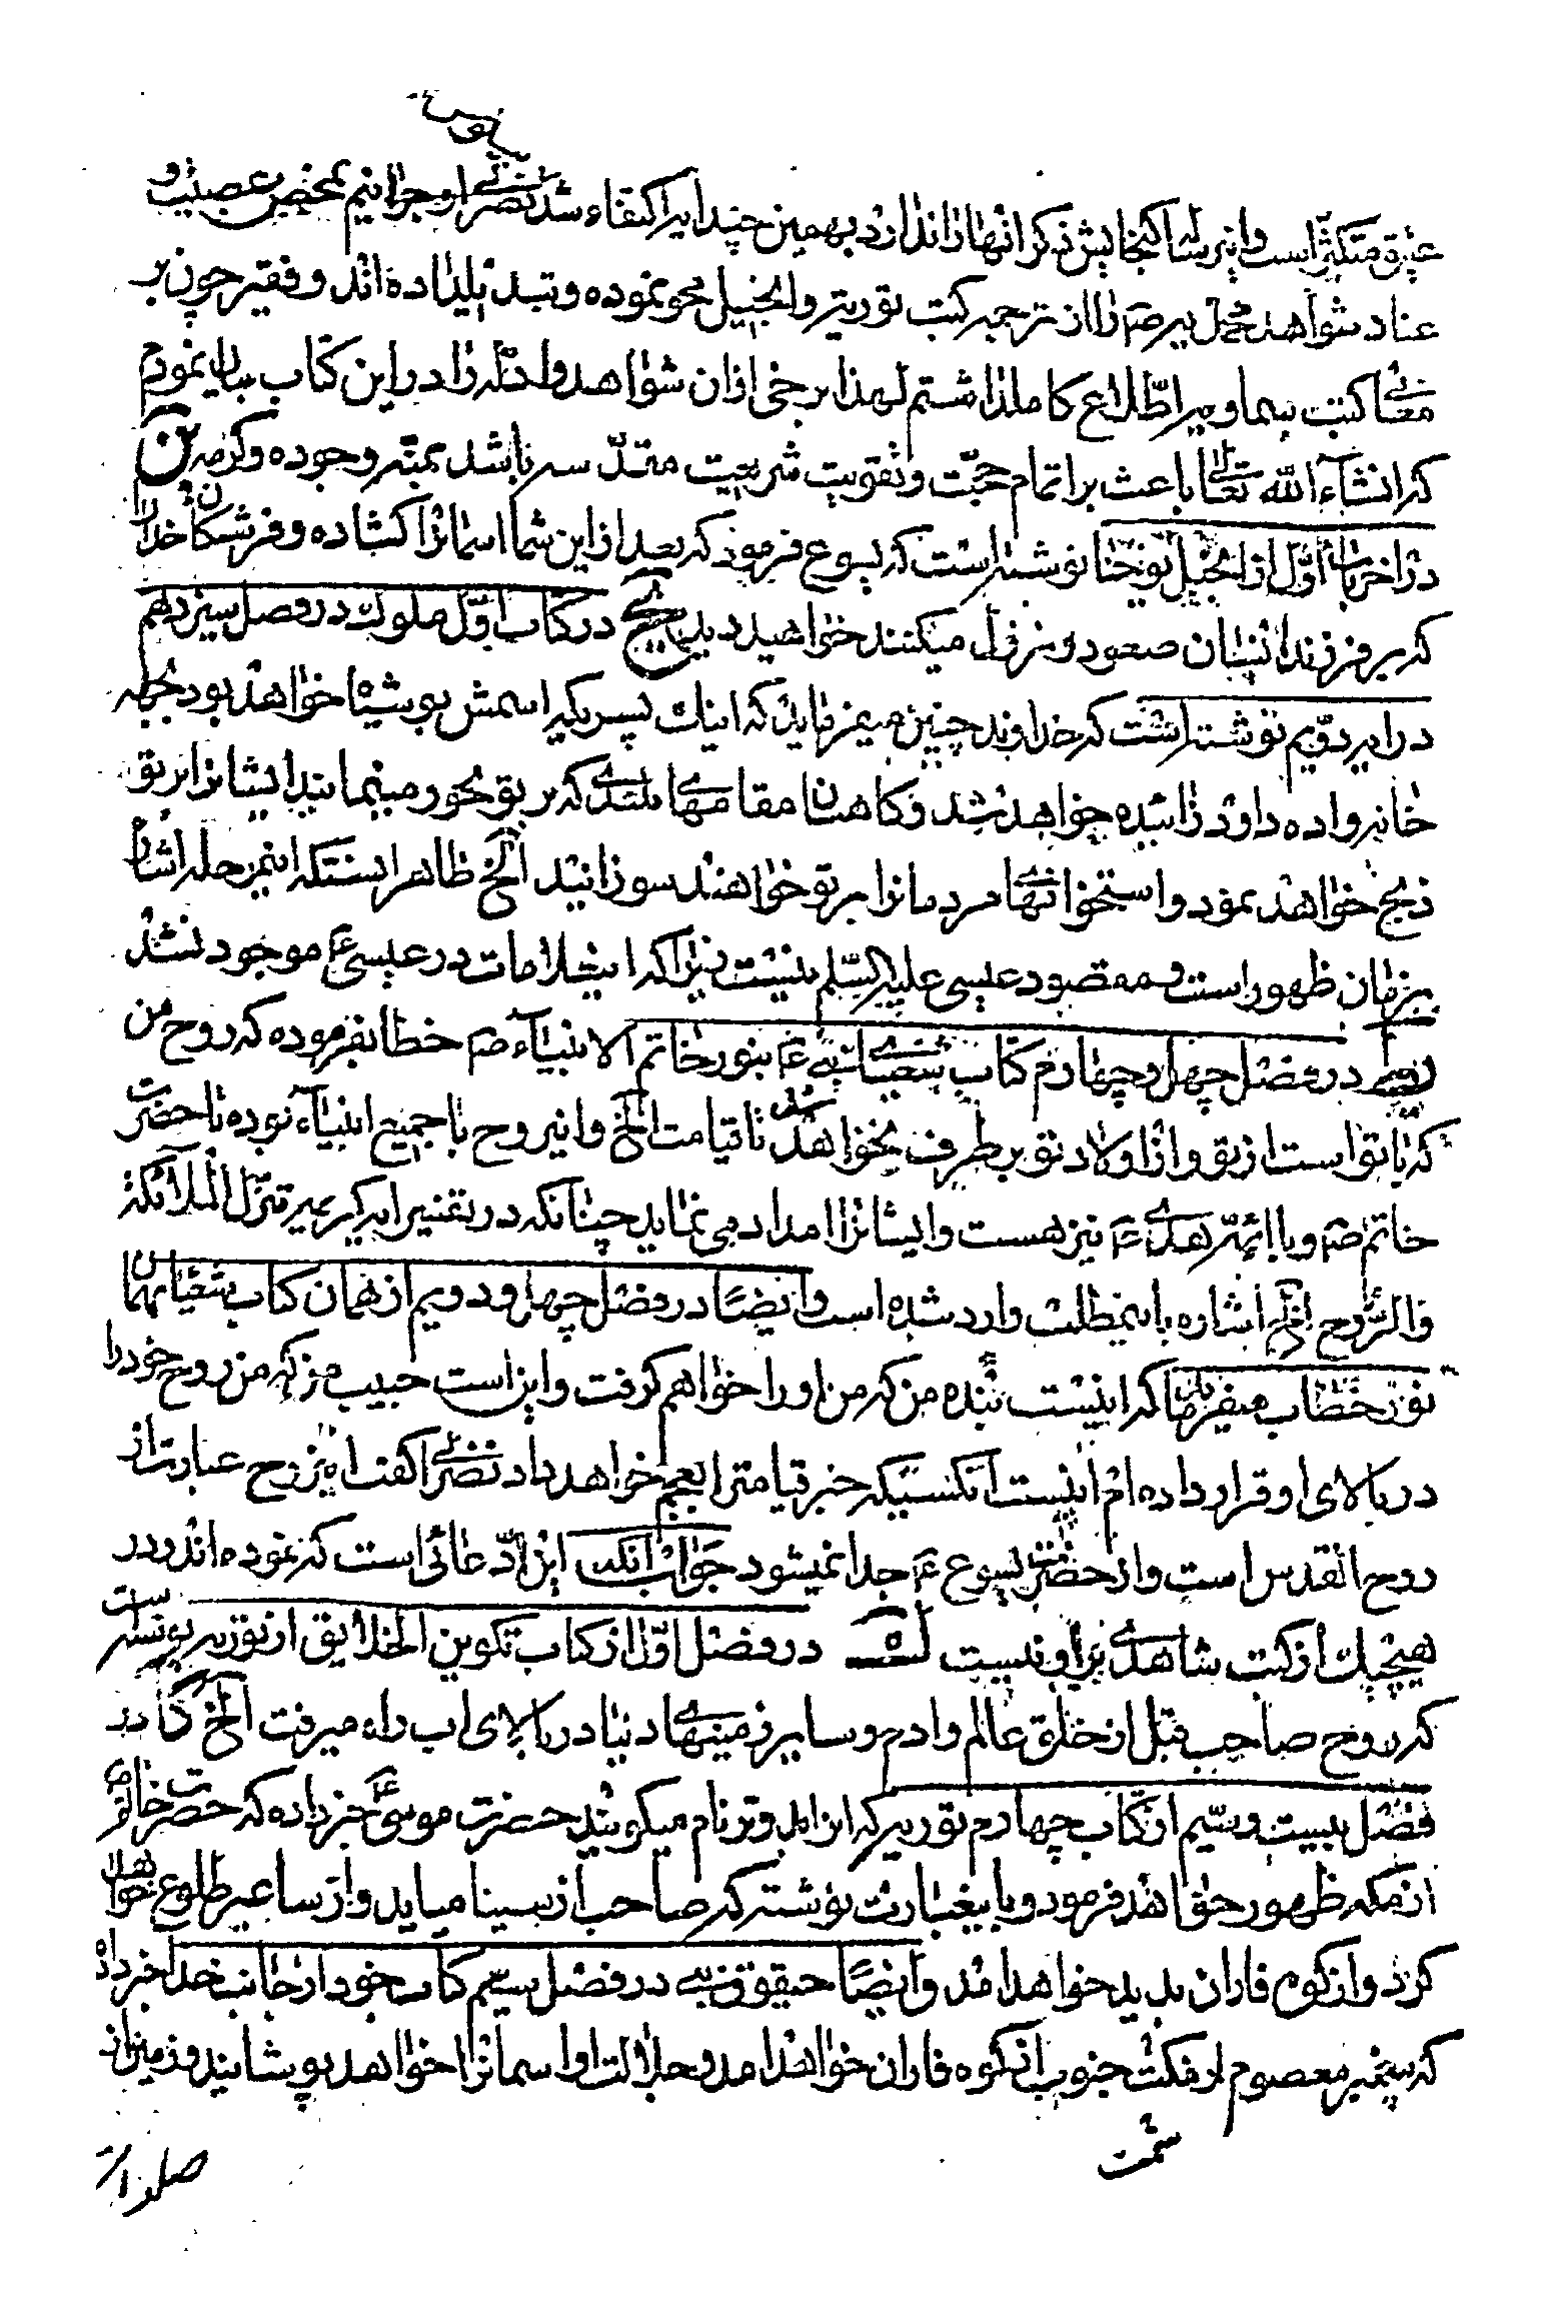 عتیق متکثر است و این رساله گنجایش ذکر انها را ندارد بهمین چند ایه اکتفاء شد نصرای اوجرانیم بمحض عصبیت و
عناد شواهد محمدیه ص را از ترجمه کتب توریة و انجیل محو نموده و تبدیل داده اند و فقیر چون بر
معنی کتب سماویه اطلاع کامل داشتم لهذا برخی از ان شواهد و ادله را در این کتاب بیان نمودم
که انشاء الله تعالی باعث بر اتمام حجت و تقویت شریعت مقدسه باشد بمنه وجوده و کرمه
در اخر باب اول از انجیل یوحنا نوشته است که یسوع فرمود که بعد از این شما اسمانرا گشاده و فرشتگان خدا را
که بر فرزند انسان صعود و نزول میکنند خواهید دید در کتاب اول ملوک در فصل سیزدهم
در ایه دویم نوشته است که خداوند چنین میفرماید که اینک پسریکه اسمش یوشیاه خواهد بود بجهة
خانواده داود زائیده خواهد شد و کاهنان مقامهای بلندی که بر تو بخور مینمایند ایشانرا بر تو
ذبح خواهد نمود و استخوانهای مردمانرا بر تو خواهند سوزانید الخ ظاهر است که اینمرحله اشاره
بزمان ظهور است و مقصود عیسی علیه السلم نیست زیرا که این علامات در عیسی ع موجود نشد
در فصل چهل و چهارم کتاب شعیای نبی ع بنور خاتم الانبیاء ص خطاب فرموده که روح من
که با تو است از تو و از اولاد تو بر طرف نخواهد شد تا قیامت الخ و این روح با جمیع انبیاء بوده تا حضرت
خاتم ص و با ائمه هدی ع نیز هست و ایشانرا امداد می نماید چنانکه در تفسیر ایه کریمه تنزل الملائکة
والروح اشاره باینمطلب وارد شده است و ایضا در فصل چهل و دویم از همان کتاب شعیا بهمان
نور خطاب میفرماید که اینست بنده من که من او را خواهم گرفت و این است حبیب من که من روح خود را
در بالای او قرار داده ام اینست انکسیکه خبر قیامترا بعجم خواهد داد نصرای گفت این روح عبارت از
روح القدس است و از حضرت یسوع ع جدا نمیشود جواب انکه این ادعائی است که نموده اند و در
هیچیک از کتب شاهدی بر او نیست در فصل اول از کتاب تکوین الخلایق از توریه نوشته است
که روح صاحب قبل از خلق عالم و ادم و سایر زمینهای دنیا در بالای اب راه میرفت الخ در
فصل بیست و سیم از کتاب چهارم توریه که انرا نام میگویند حضرت موسی ع خبر داده که حضرت خاتم ص
از مکه ظهور خواهند فرمود و باینعبارت نوشته که صاحب از سینا میاید و از ساعیر طلوع خواهد
کرد و از کوه فاران پدید خواهد امد و ایضا حیقوق نبی در فصل سیم کتاب خود از جانب خدا خبر داده
که پیغمبر معصوم از جنوب از کوه فاران خواهد امد و جلالت او اسمانرا خواهد پوشانید و زمین از
سمت